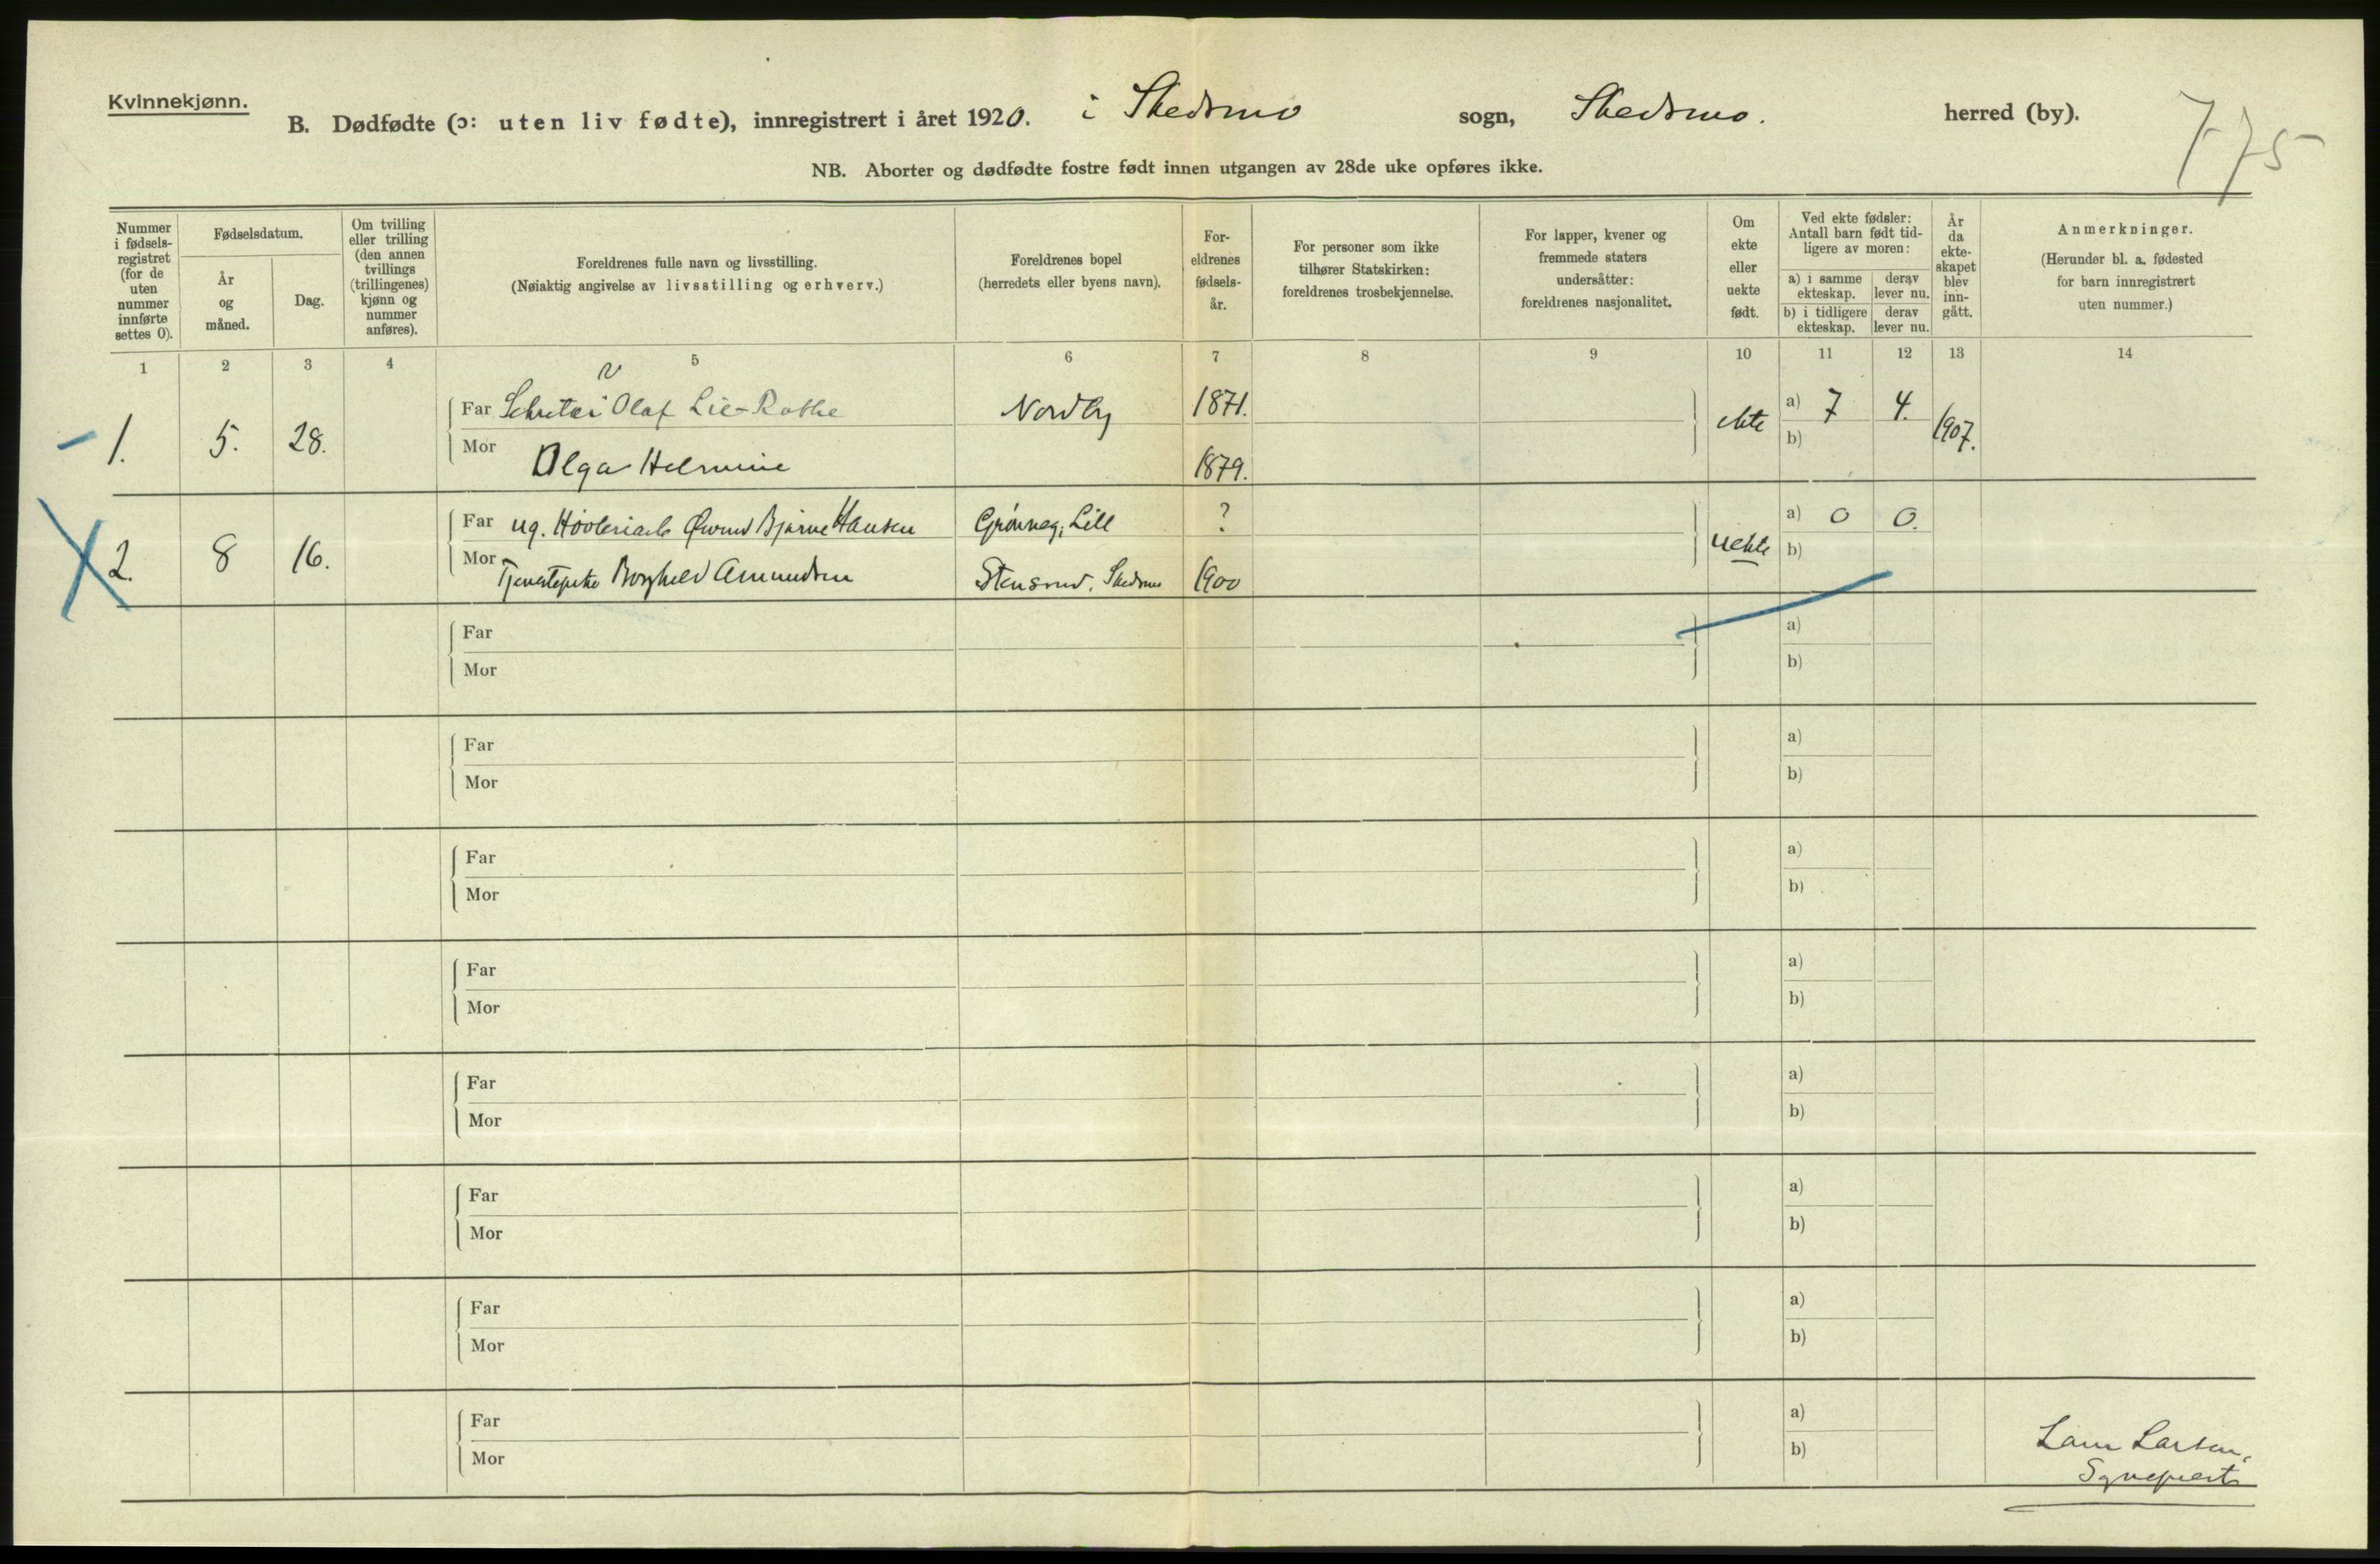 Kvinnekjønn.
B. Dødfødte (ɔ: uten liv fødte), innregistrert i året 1920. i Skedsmo sogn, Skedsmo. herred (by).
775
NB. Aborter og dødfødte fostre født innen utgangen av 28de uke opføres ikke.
Nummer i fødsels-registret (for de uten nummer innførte settes 0).
Fødselsdatum.
År og måned.
Dag.
Om tvilling eller trilling (den annen tvillings (trillingenes) kjønn og nummer anføres).
Foreldrenes fulle navn og livsstilling.
(Nøiaktig angivelse av livsstilling og erhverv.)
Foreldrenes bopel
(herredets eller byens navn).
For-eldrenes fødsels-år.
For personer som ikke tilhører Statskirken: foreldrenes trosbekjennelse.
For lapper, kvener og fremmede staters undersåtter: foreldrenes nasjonalitet.
Om ekte eller uekte født.
Ved ekte fødsler: Antall barn født tid-ligere av moren:
a) i samme ekteskap.
derav lever nu.
b) i tidligere ekteskap.
derav lever nu.
År da ekte-skapet blev inn-gått.
Anmerkninger.
(Herunder bl. a. fødested for barn innregistrert uten nummer.)
1 2 3 4 5 6 7 8 9 10 11 12 13 14
1. 5. 28. Far Olaf Lie-Rothe Nordby 1871. ekte a) 7 4. 1907.
Mor Olga Helmine 1879. b)
2. 8 16. Far ug. Øivind Bjarne Hansen Lill ? uekte a) 0 0.
Mor Tjenestepike Borghild Amundsen Stensrud. Skedsmo 1900 b)
Far a)
Mor b)
Far a)
Mor b)
Far a)
Mor b)
Far a)
Mor b)
Far a)
Mor b)
Far a)
Mor b)
Far a)
Mor b)
Far a)
Mor b)
Larsen,
Sogneprest